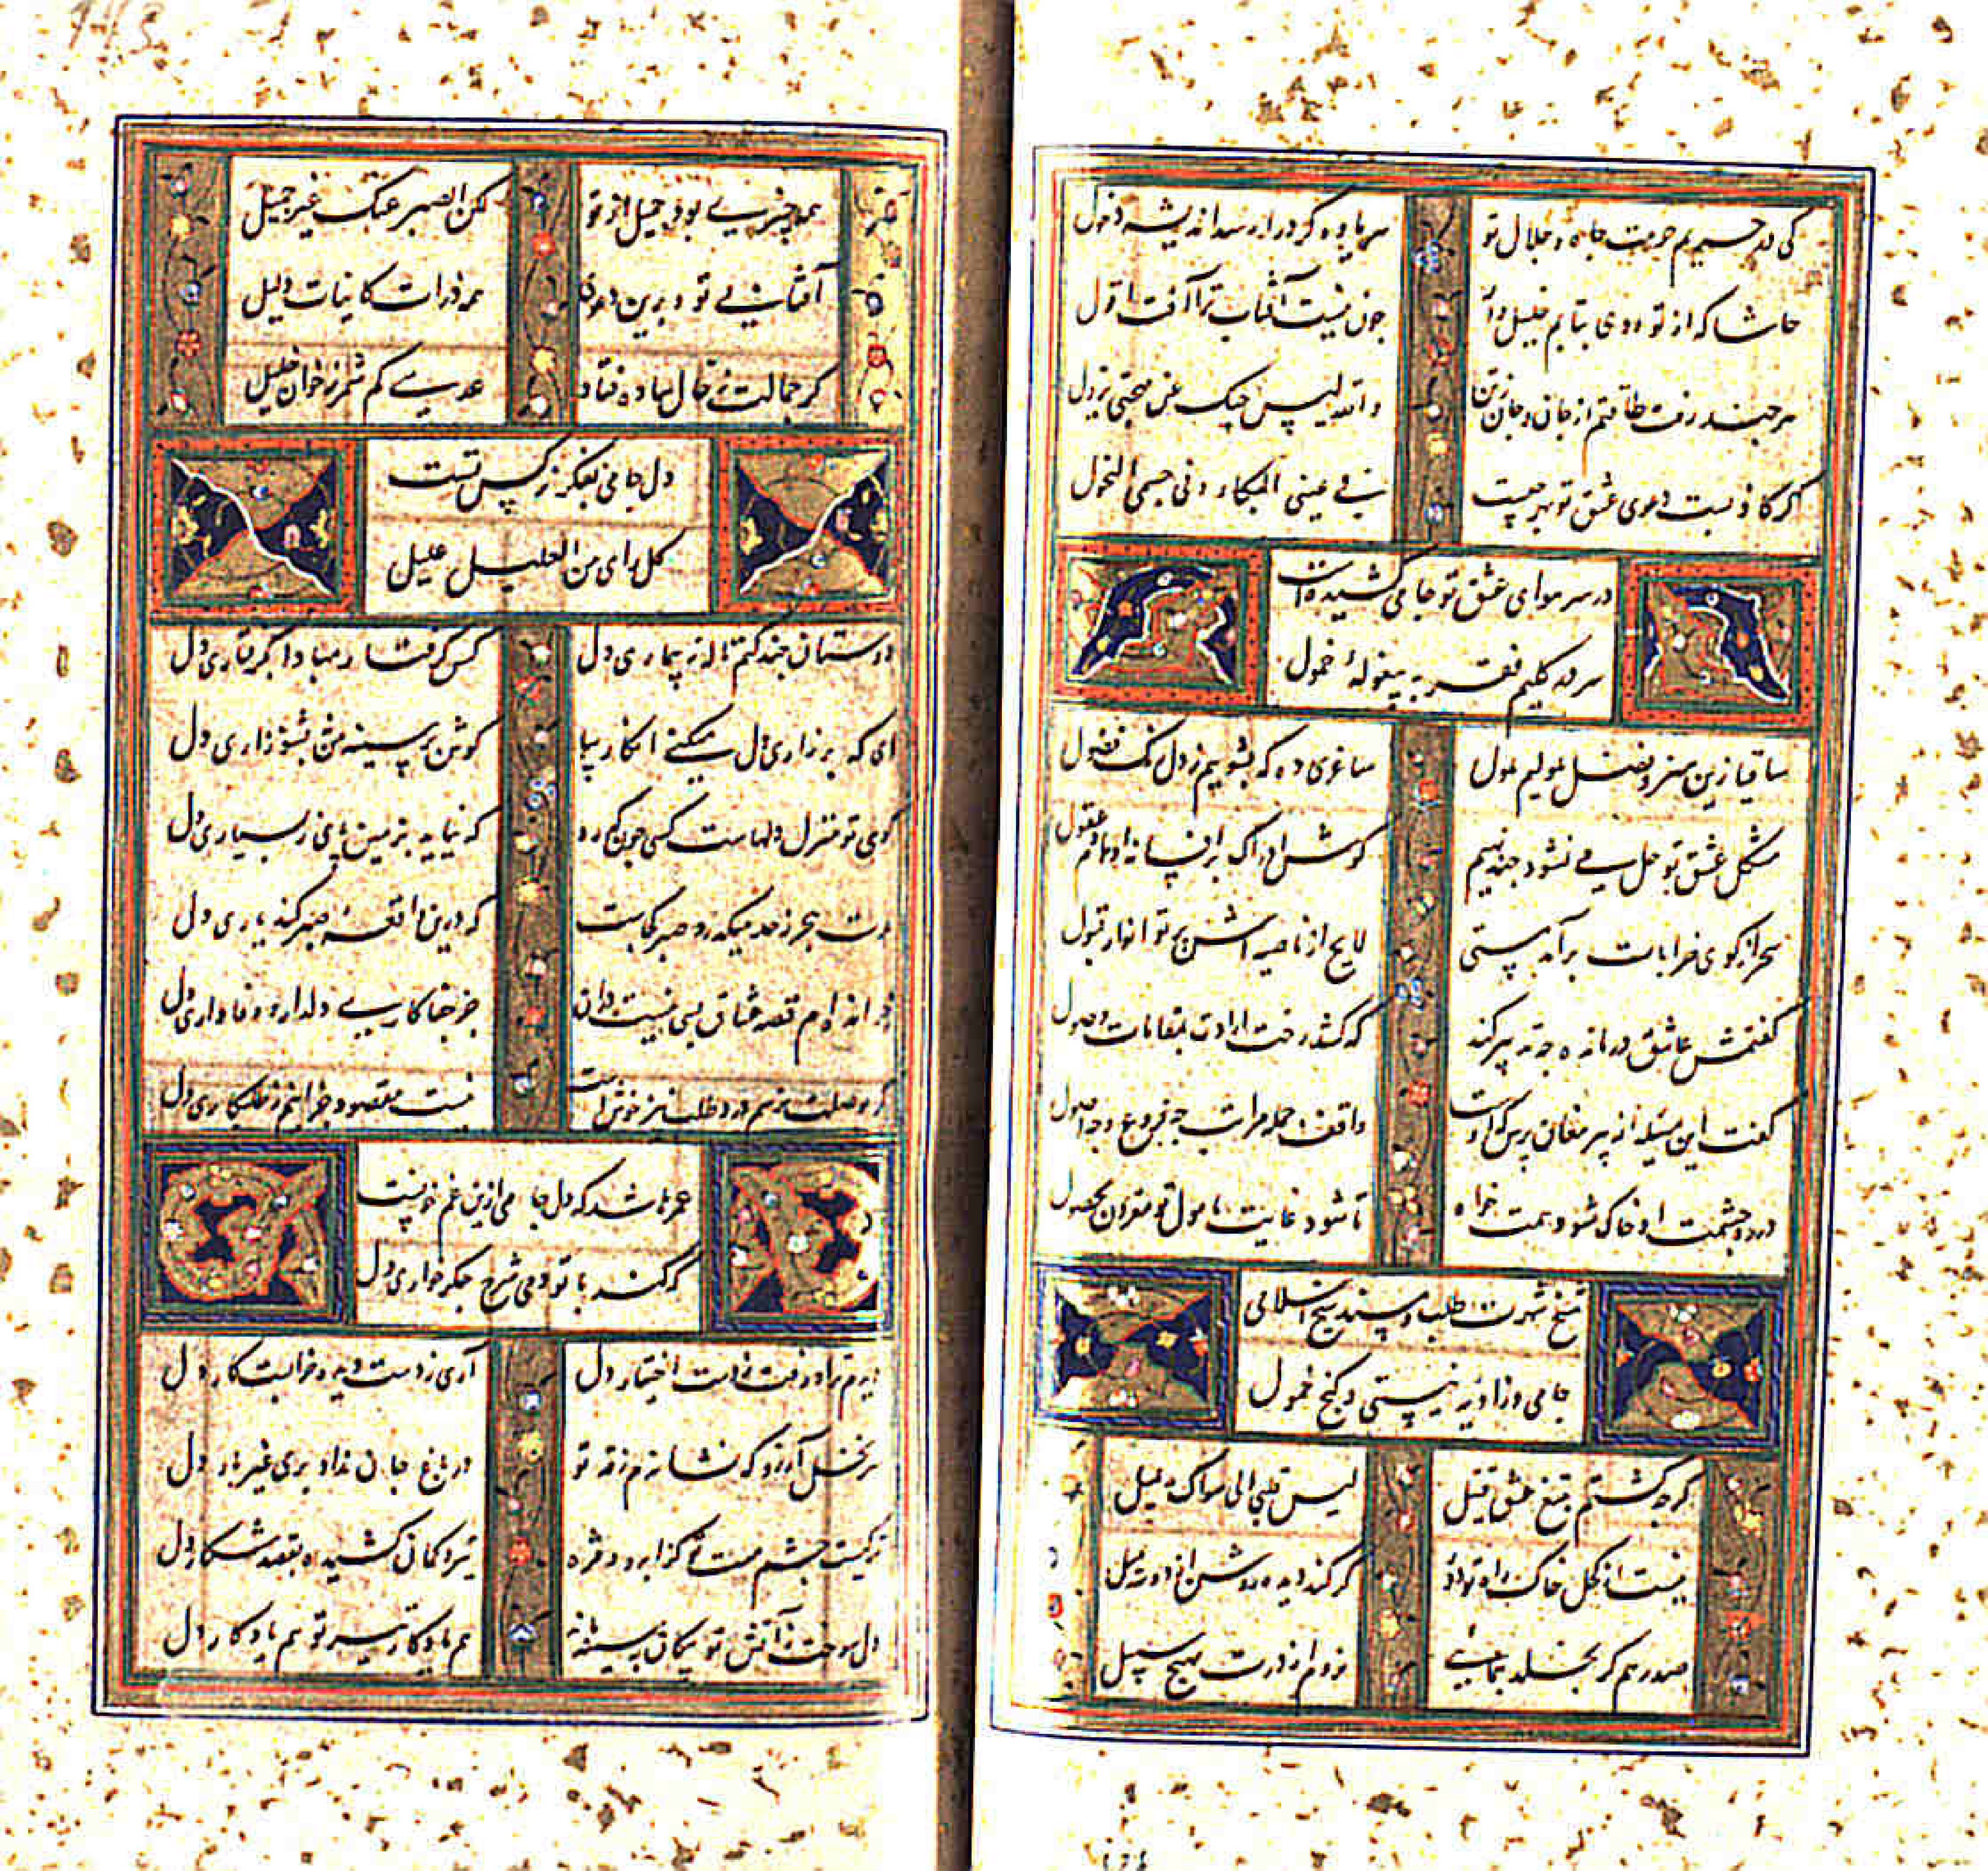 کی در حریم حرمت جاه و جلال تو
سر باده کرد در ارسد اندیشه دخول
حاشا که از تو روی بتابم خلیل وار
چون نیست آفتاب ترا آفت افول
هر چند رفت طاقتم از جان و جان ز تن
والله لیس حبک عن مهجتی یزول
در سر هوای عشق تو جامی کشیده است
سر در گلیم فقر به بیغولهٔ خمول
ساقیا زین هنر و فضل ملولیم ملول
ساغری ده که بشوییم ز دل نک فضول
مشکل عشق تو حل می نشود چند نهیم
گوش ادراک بر افسانهٔ اوهام عقول
سحر از کوی خرابات برآمد مستی
لایح از ناصیه اش پرتو انوار قبول
گفتمش عاشق درمانده چه تدبیر کند
که کشد رخت ارادت بمقامات وصول
گفت این مسئله از پیر مغان پرس که اوست
واقف جمله مراتب چه فروع و چه اصول
در ره خدمت او خاک شو و همت خواه
تا شود غایت مامول تو مقرون بحصول
شیخ شهرت طلب و مسند شیخ اسلامی
جامی و زاویهٔ نیستی و کنج خمول
گر چه گشتم بتیغ عشق قتیل
لیس قلبی الی سواک یمیل
نیست از کحل خاک راه تو دور
گر کند دیده روشن از دو سه میل
صد رهم گر بخلد بنمایند
نروم از درت بهیچ سبیل
همه چیزی بود جمیل از تو
لکن الصبر عنک غیر جمیل
آفتابی تو و برین دعوی
همه ذرات کاینات دلیل
گر جمالت ز خال ساده فتاد
عدسی کم شمر ز خوان خلیل
دل جامی بفکر نرگس تست
کل رای من العلیل علیل
دوستان چند کنم ناله ز بیماری دل
کس گرفتار مبادا بگرفتاری دل
ای که بر زاری دل میکنی انکار بیا
گوش بر سینهٔ من بشنو زاری دل
کوی تو منزل دلهاست کسی چون گذرد
که نیاید بزمین پای ز بسیاری دل
مدت هجر ز حد میگذرد صبر کجاست
که درین واقعه صبر کند یاری دل
خوانده ام قصه عشاق بسی نیست در آن
جز جفاکاری دلدار و وفاداری دل
گر بوصلت نرسم درد طلب نیز خوش است
نیست مقصود جز اینم ز طلبکاری دل
عمرها شد که دل جامی ازین غم خونست
که کند با تو دمی شرح جگرخواری دل
دیدم ترا و رفت ز دست اختیار دل
آری ز دست دیده خرابست کار دل
هر نخل آرزو که نشاندم ز قد تو
در باغ جان نداد بری غیر بار دل
ترکیست چشم مست تو کز ابرو و مژه
تیر و کمان کشیده بقصد شکار دل
دل سوخت ز آتش تو و پیکان بسینه ماند
هم یادگار تیر تو هم یادگار دل